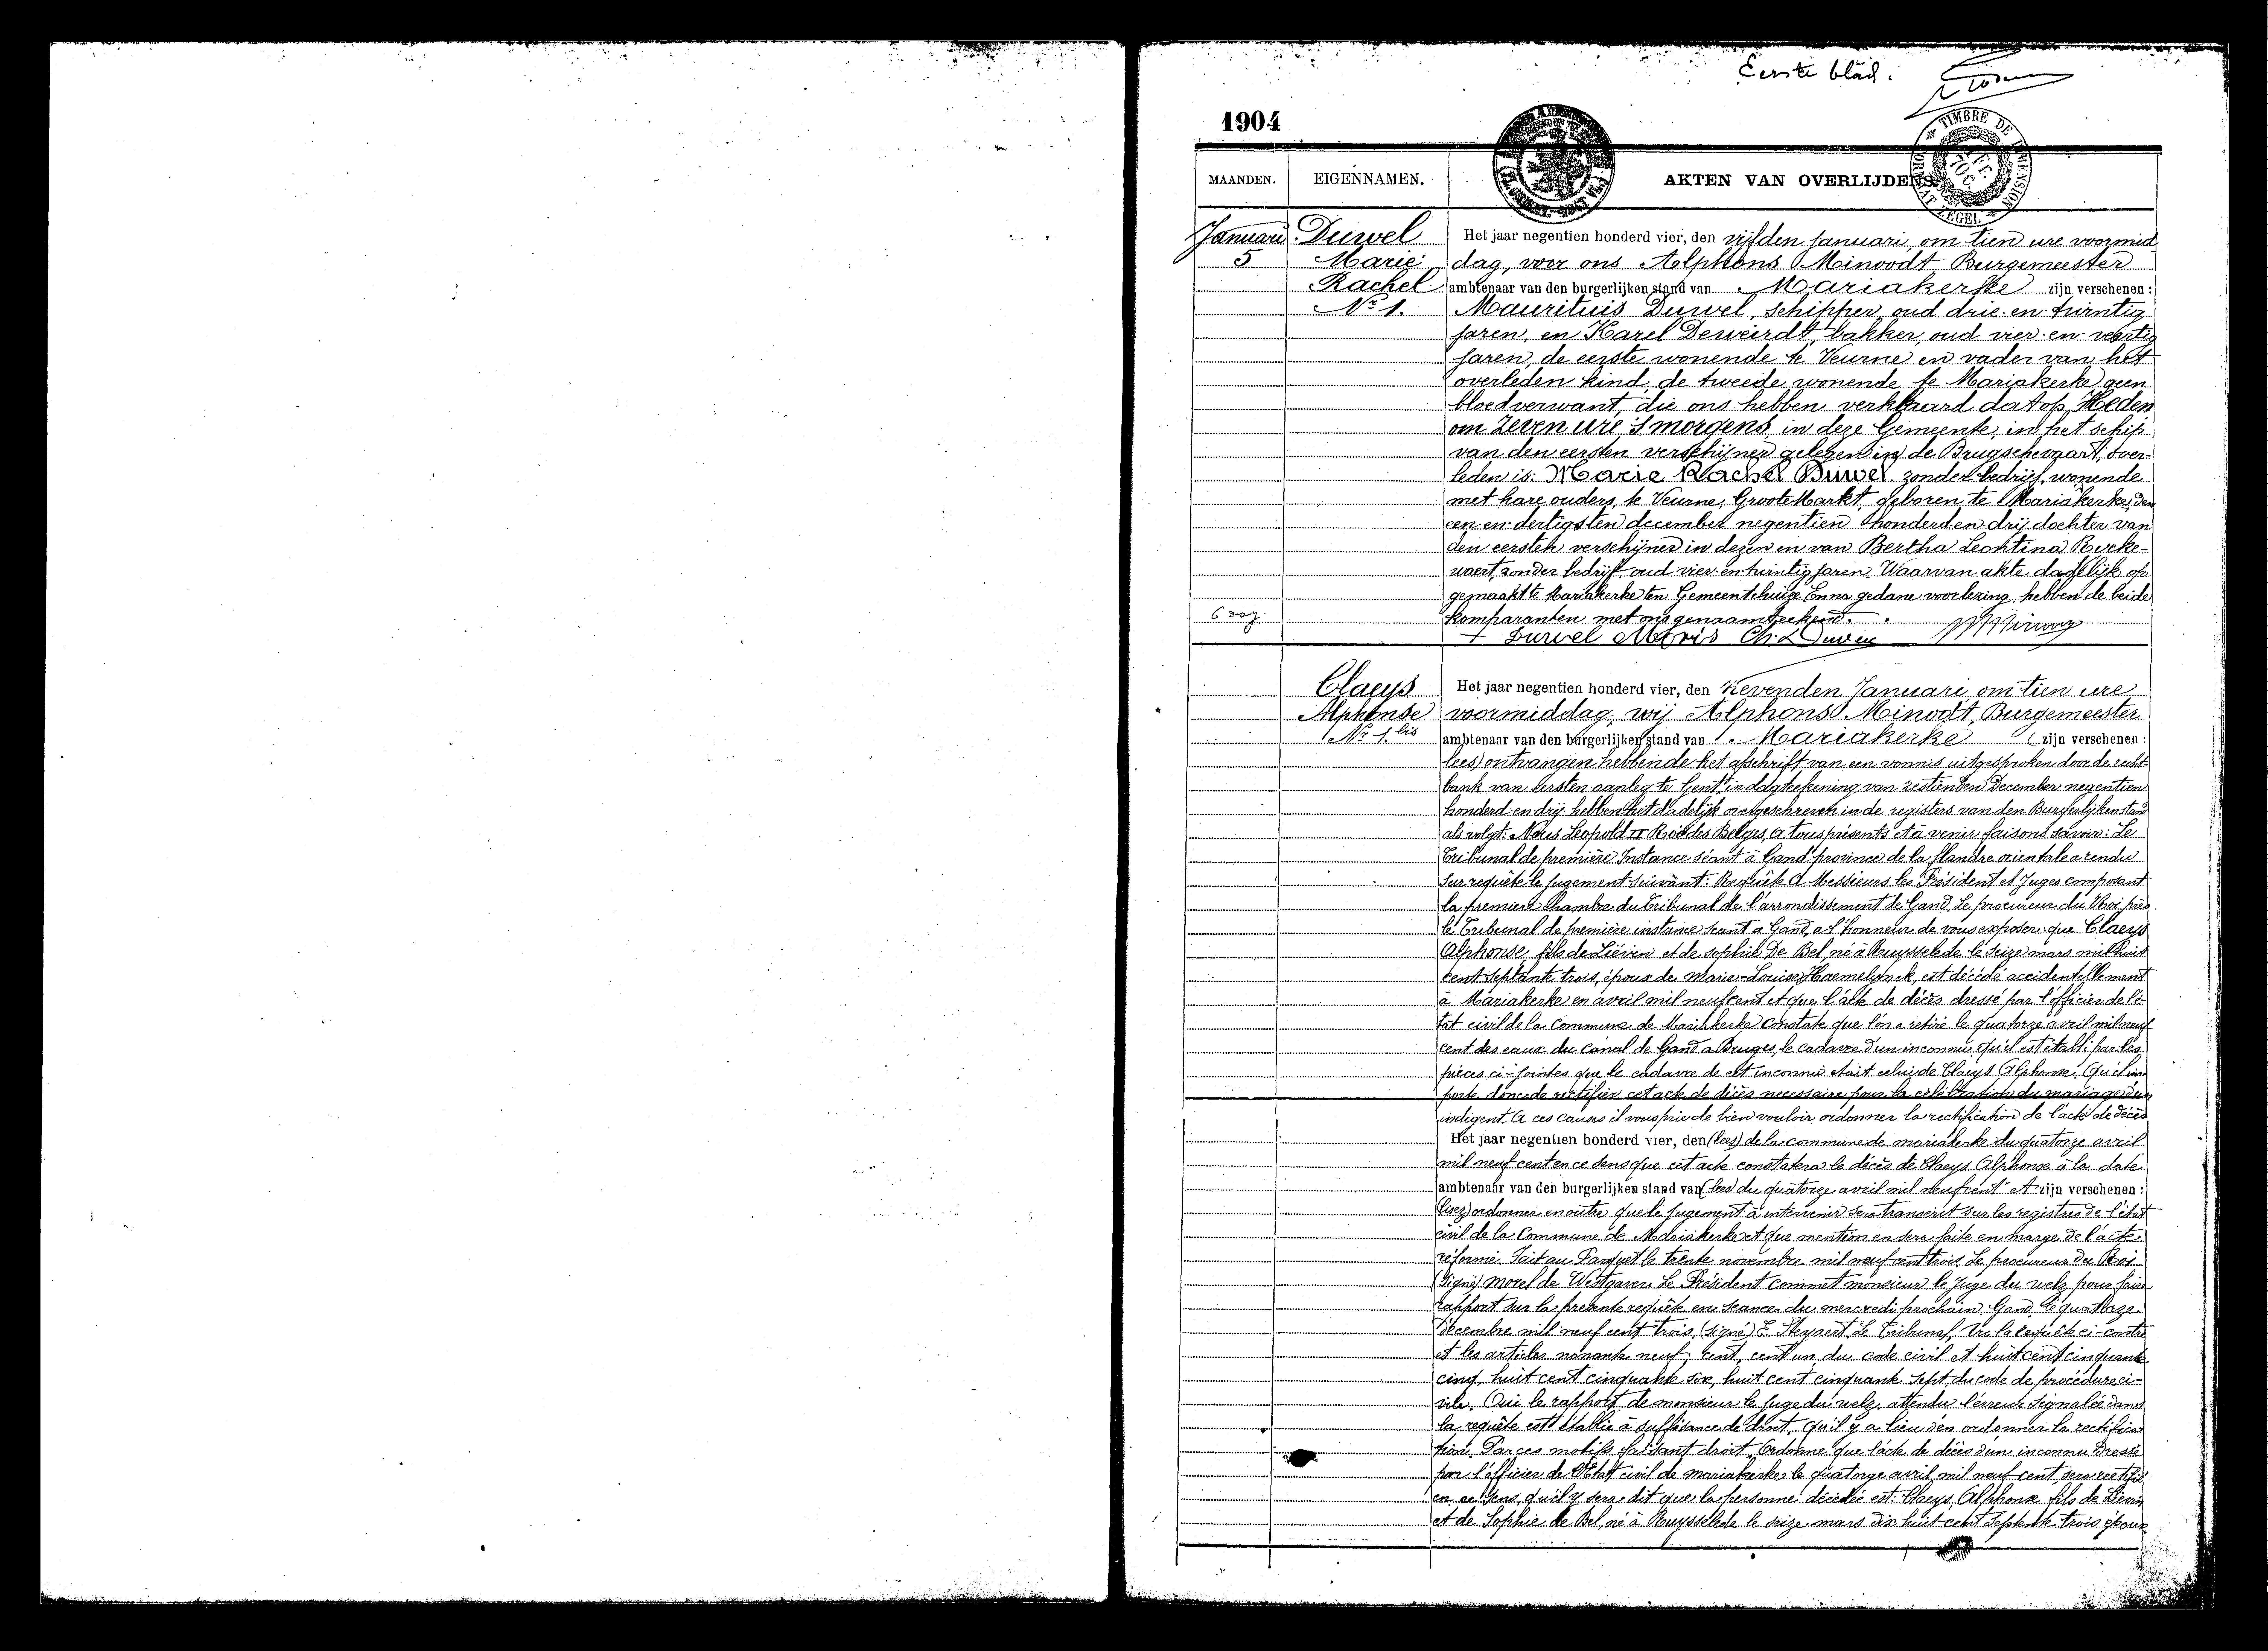 Eerste blad.
1904
TIMBRE DE DIMENSION
FORMAAT ZEGEL
MAANDEN. EIGENNAMEN. AKTEN VAN OVERLIJDENS
Januari Duwel Het jaar negentien honderd vier, den vijfden Januari, om tien ure voormid
5 Marie dag, voor ons Alphons Minoodt Burgemeester
Rachel ambtenaar van den burgerlijken stand van Mariakerke zijn verschenen :
Nr 1. Mauritius Duwel, schipper, oud drie en twintig
jaren, en Karel Deweirdt, bakker, oud vier en veertig
jaren, de eerste wonende te Veurne en vader van het
overleden kind, de tweede wonende te Mariakerke geen
bloedverwant, die ons hebben verklaard dat op Heden
om zeven ure 's morgens in deze Gemeente, in het schip
van den eersten verschijner gelegen in de Brugschevaart, over-
leden is: Marie Rachel Duwel zonder bedrijf, wonende
met hare ouders, te Veurne, Groote Markt, geboren te Mariakerke, den
een en dertigsten december negentien honderd en drij dochter van
den eersten verschijner in dezen en van Bertha Leontina
waert, zonder bedrijf, oud vier en twintig jaren. Waarvan akte dadelijk op
gemaakt te Mariakerke ten Gemeentehuize En na gedane voorlezing, hebben de beide
6 dag. komparanten met ons genaamteekend.
+ Duwel Moris
Claeys Het jaar negentien honderd vier, den zevenden Januari om tien ure
Alphonse voormiddag, wij Alphons Minoodt, Burgemeester
Nr 1 bis ambtenaar van den burgerlijken stand van Mariakerke zijn verschenen :
(lees) ontvangen hebbende het afschrift van een vonnis uitgesproken door de recht-
bank van eersten aanleg te Gent in dagteekening van zestienden December negentien
honderd en drij hebben het dadelijk overgeschreven in de registers van den Burgerlijken stand
als volgt: Nous Leopold II Roi des Belges, à tous présents et à venir faisons savoir: Le
Tribunal de première Instance séant à Gand province de la flandre orientale a rendu
sur requête le jugement suivant: Requête A Messieurs les Président et Juges composant
la première Chambre du Tribunal de l'arrondissement de Gand. Le procureur du Roi près
le Tribunal de première instance séant à Gand, a l'honneur de vous exposer que Claeys
Alphonse, fils de Liévin et de Sophie De Bel, né à Ruysselede le seize mars mil huit
cent septante trois, époux de Marie-Louise Haemelynck, est décédé accidentellement
à Mariakerke en avril mil neuf cent et que l'acte de décès dressé par l'officier de l'é-
tat civil de la Commune de Mariakerke constate que l'on a retiré le quatorze avril mil neuf
cent des eaux du Canal de Gand à Bruges, le cadavre d'un inconnu, qu'il est établi par les
pièces ci-jointes que le cadavre de cet inconnu était celui de Claeys Alphonse. Qu'il im
porte donc de rectifier cet acte de décès nécessaire pour la célébration du mariage d'un
indigent. A ces causes il vous prie de bien vouloir ordonner la rectification de l'acte de décès
Het jaar negentien honderd vier, den (lees) de la commune de mariakerke du quatorze avril
mil neuf cent en ce sens que cet acte constatera le décès de Claeys Alphonse à la date
ambtenaar van den burgerlijken stand van (lees) du quatorze avril mil neuf cent Et zijn verschenen :
(lisez) ordonner en outre que le jugement à intervenir sera transcrit sur les registres de l'état
civil de la Commune de Mariakerke et que mention en sera faite en marge de l'acte
réformé. Fait au Parquet le trente novembre mil neuf cent trois. Le procureur du Roi
(Signé) Morel de Westgaver. Le Président commet monsieur le Juge du welz pour faire
rapport sur la présente requête en séance du mercredi prochain. Gand, le quatorze
Décembre mil neuf cent trois (signé) E. Steyaert. Le Tribunal, Vu la requête ci-contre
et les articles nonante neuf, cent, cent un, du code civil et huit cent cinquante
cinq, huit cent cinquante six, huit cent cinquante sept du code de procédure ci-
vile. Ouï le rapport de monsieur le juge du welz, attendu l'erreur signalée dans
la requête est établie à suffisance de droit, qu'il y a lieu d'en ordonner la rectifica
tion. Par ces motifs faisant droit, Ordonne que l'acte de décès d'un inconnu dressé
par l'officier de l'Etat civil de mariakerke le quatorze avril mil neuf cent, sera rectifié
en ce sens, qu'il y sera dit que la personne décédée est: Claeys, Alphonse fils de Liévin
et de Sophie de Bel, né à Ruysselede le seize mars dix huit cent septante trois époux